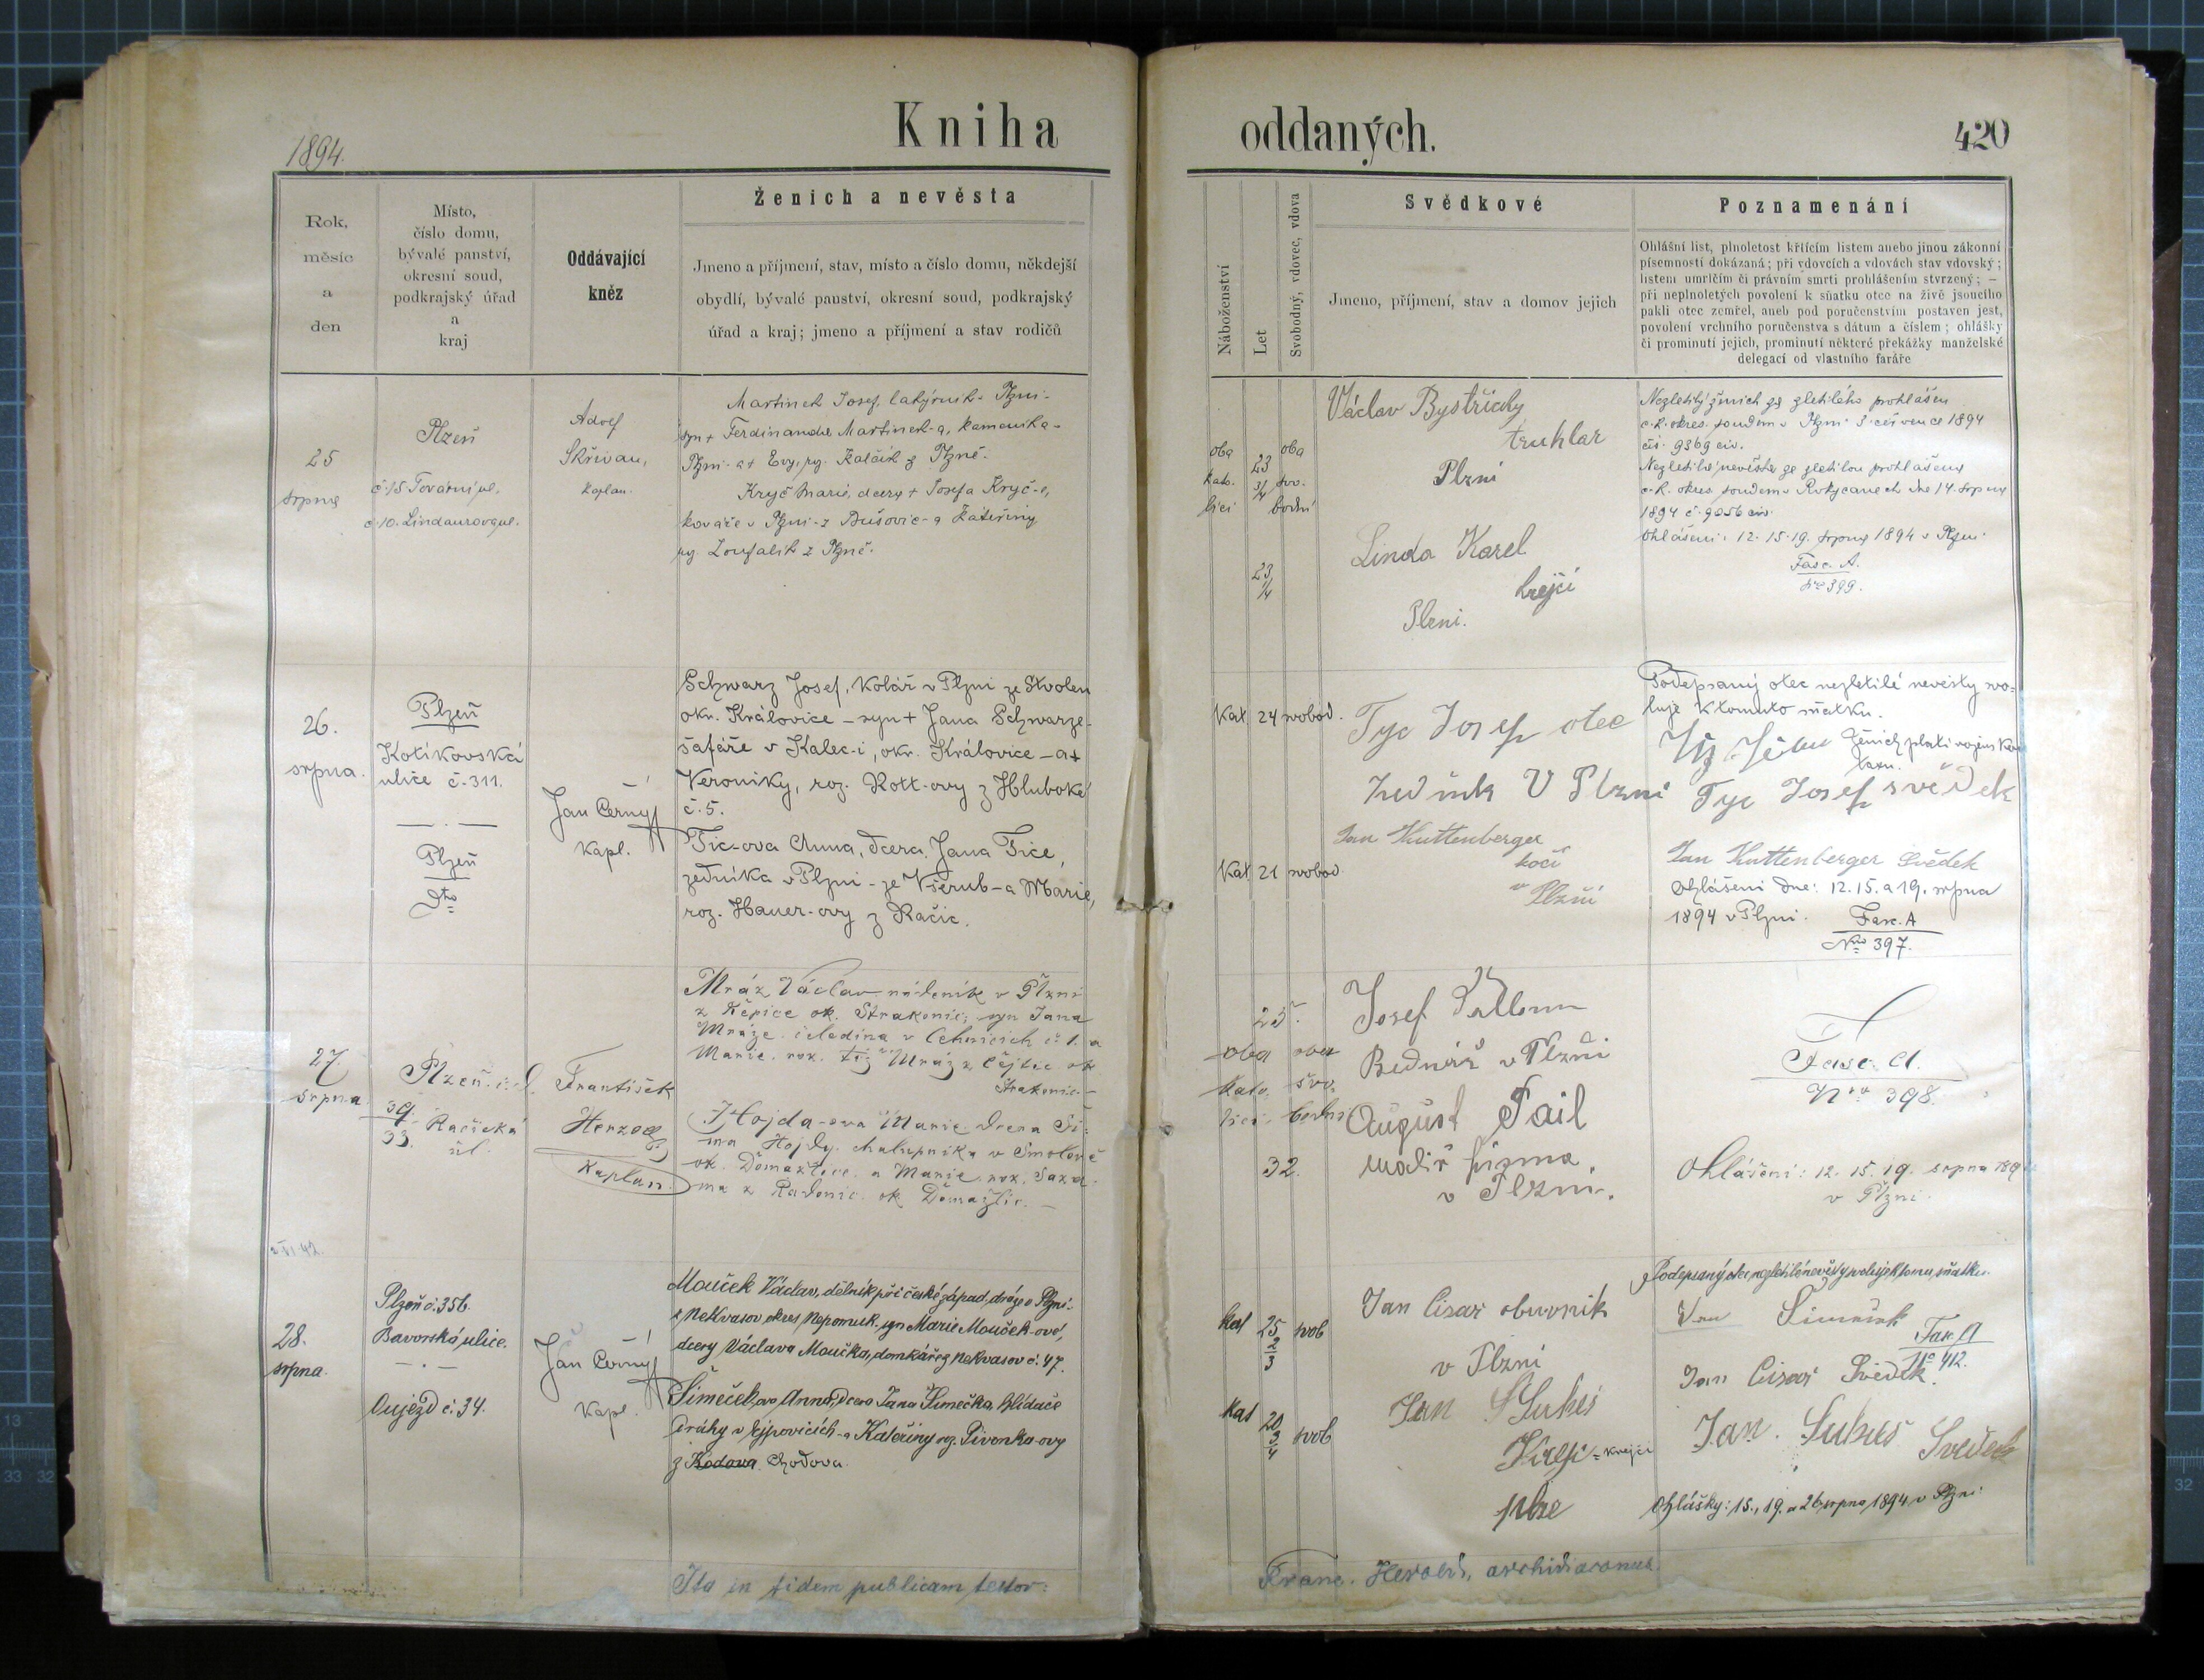 Kniha oddaných.
420
1894.
Rok,
měsíc
a
den
Místo,
číslo domu,
bývalé panství,
okresní soud,
podkrajský úřad
a
kraj
Oddávající
kněz
Ženich a nevěsta
Jmeno a příjmení, stav, místo a číslo domu, někdejší
obydlí, bývalé panství, okresní soud, podkrajský
úřad a kraj; jmeno a příjmení a stav rodičů
Náboženství
Let
Svobodný, vdovec, vdova
Svědkové
Jmeno, příjmení, stav a domov jejich
Poznamenání
Ohlášní list, plnoletost křticím listem anebo jinou zákonní
písemností dokázaná; při vdovcích a vdovách stav vdovský;
listem umrlčím či právním smrti prohlášením stvrzený; —
při neplnoletých povolení k sňatku otce na živě jsoucího
pakli otec zemřel, aneb pod poručenstvím postaven jest,
povolení vrchního poručenstva s dátum a číslem; ohlášky
či prominutí jejich, prominutí některé překážky manželské
delegací od vlastního faráře
25
srpna
Plzeň
č. 15 Tovární ul.
č. 10. Lindaurova ul.
Adolf
Skřivan,
kaplan.
Martinek Josef, v Plzni-
syn + Ferdinanda Martinek-a, kameníka-
Plzni- a + Evy, roz. Kalčík z Plzně.
Kryč Marie, dcera + Josefa Kryč-e,
kováře v Plzni- z Dušovic- a Kateřiny
roz. Zoufalík z Plzně.
oba
kato-
líci
23
3/4
oba
svo-
bodní
23
1/4
Václav Bystřický
truhlar
Plzni
Linda Karel
krejčí
Plzni.
Nezletilý ženich za zletilého prohlášen
c. k. okres. soudem v Plzni 3. července 1894
čís. 9369 civ.
Nezletilá nevěsta za zletilou prohlášena
c. k. okres. soudem v Rokycanech dne 14. srpna
1894 č. 9056 civ.
Ohlášeni: 12. 15. 19. srpna 1894 v Plzni
Fasc. A.
Nro 399.
26.
srpna.
Plzeň
Kotíkovská
ulice č. 311.
Plzeň
dto
Jan Černý
kapl.
Schwarz Josef, kolář v Plzni ze Stvolen
okr. Královice - syn + Jana Schwarze-
šafáře v Kalec-i, okr. Královice - a +
Veroniky, roz. Rott-ovy z Hluboké
č. 5.
Tic-ova Anna, dcera Jana Tice,
zedníka v Plzni - ze Všerub - a Marie,
roz. Hauer-ovy z Račic.
Kat. 24 svobod.
Kat. 21 svobod.
Tyc Josef otec
zedník V Plzni
Jan Kuttenberger
kočí
v Plzni
Podepsaný otec nezletilé nevěsty svo-
luje k tomuto sňatku.
Ženich platí vojens.
taxu.
Tyc Josef svědek
Jan Kuttenberger svědek
Ohlášeni dne: 12. 15. a 19. srpna
1894 v Plzni.
Fasc. A
Nro 397.
27.
srpna
Plzeň
39.
33. Račická
ul.
František
Herzog
Kaplan.
Mráz Václav nádeník v Plzni
z Řepice ok. Strakonic; syn Jana
Mráze čeledína v Cehnicích č. 1. a
Marie roz. též Mráz z Čejtic ok
Strakonic-
Hojda-ova Marie dcera Ši-
ma Hojdy chalupníka v Smolově
ok. Domažlice a Marie roz. Saxa-
ma z Radonic ok Domažlic. -
25.
oba
kato-
líci
oba
svo-
bodní
32.
Josef
Bednář v Plzni
August Pail
malíř písma
v Plzni.
Fasc. A.
Nro 398.
Ohlášeni: 12. 15. 19. srpna 1894
v Plzni
28.
srpna.
Plzeň č. 356.
Bavorská ulice.
Oujezd č. 34.
Jan Černý
kapl.
Mouček Václav, dělník při české západ. dráze v Plzni-
z Nekvasov okres Nepomuk- syn Marie Mouček-ové,
dcery Václava Moučka, domkáře z Nekvasov č. 47.
Šimeček-ova Anna, dcera Jana Šimečka hlídače
dráhy v Ejpovicích - a Kateřiny roz. Pivonka-ovy
z Kodova Chodova.
kat
25
2/3
svob
kat
20
3/4
svob
Jan Cisař obuvnik
v Plzni
Jan Sukes
Krejci = krejčí
Podepsaný otec nezletilé nevěsty svoluje k tomu sňatku.
Jan Šimeček
Fasc. A
No 412.
Jan Cisař Svědek.
Jan Sukes Svedek
Ohlášky: 15., 19. a 26. srpna 1894 v Plzni
Ita in fidem publicam testor:
Franc. Herold, archidiaconus.